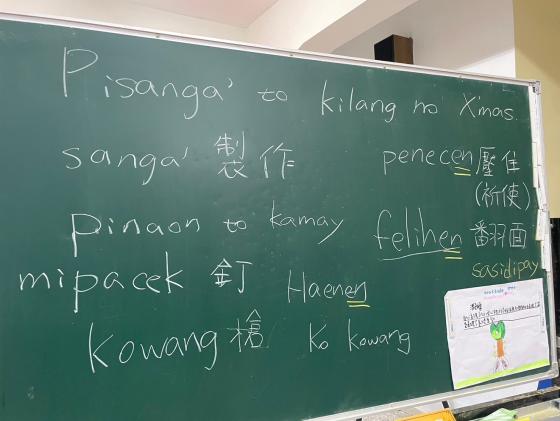 Pisanga' to kilang no X'mas.
sanga' 製作
penecen 壓住
(祈使)
pinaon to kamay
felihen 翻面
sasidipay
mipacek 釘
Haenen
kowang 槍
ko kowang